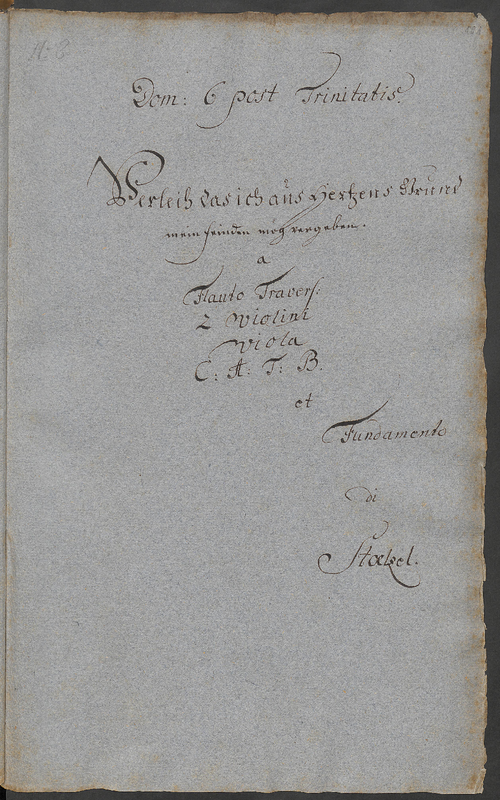 Dom: 6 post Trinitatis.
Verleih das ich aus Hertzens Grund
mein feinden mög vergeben.
a
Flauto Travers:
2 Violini
Viola
C: A: T: B.
et
Fundamento
di
Stœlzel.